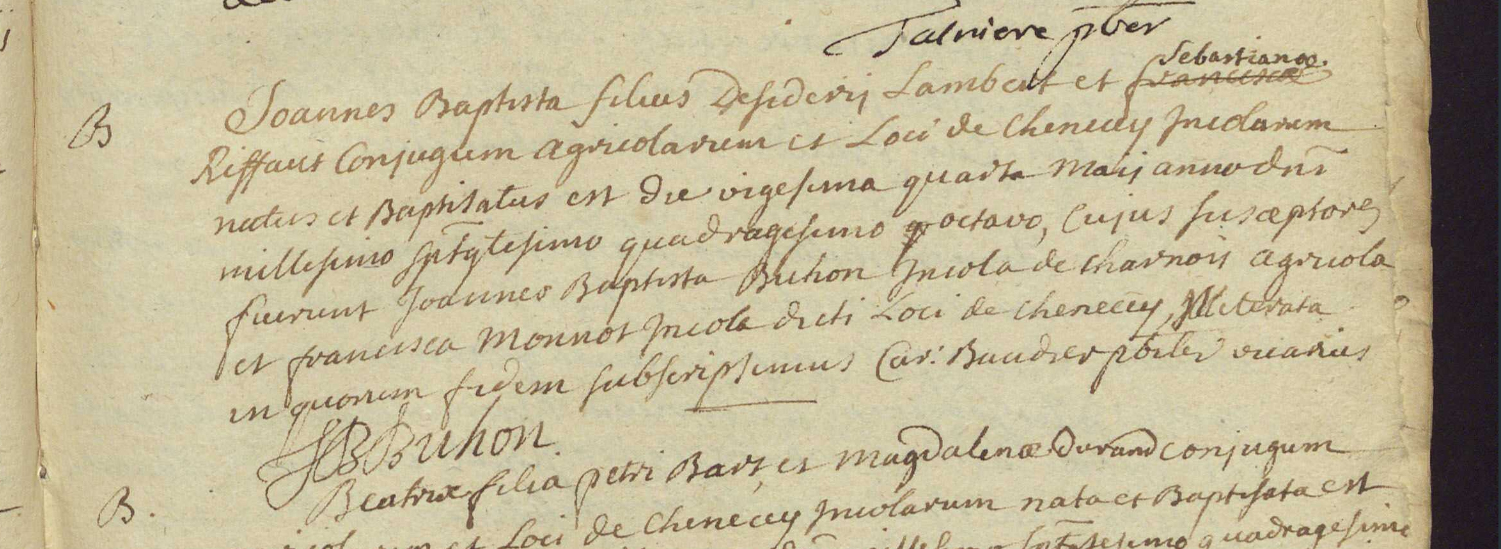 Talniere pbter
Sebastianæ.
B Joannes Baptista filius Desiderij Lambert et francisca
Riffaut Conjugum agricolarum et Loci de Chenecey Jncolarum
natus et Baptisatus est die vigesima quarta Maij anno dni
millesimo sptgtesimo quadragesimo octavo, Cujus susceptores
fuerunt Joannes Baptista Buhon Jncola de Charnois agricola
et francisca Monnot Jncola dicti Loci de Chenecey, Jlliterata
in quorum fidem subscripsimus Car: Baudier pbter vicarius
JB Buhon
Beatrix filia petri Bart et Magdalenæ Durand conjugum
B. et Loci de Chenecey Jncolarum nata et Baptisata est
quadragesimo